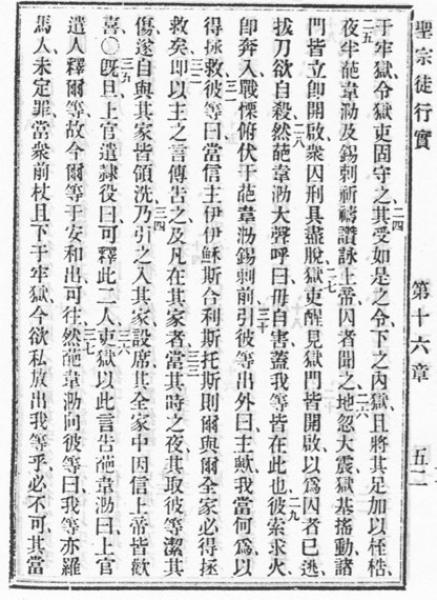 聖宗徒行實 第十六章 五二
于牢獄、令獄吏固守之、二四其受如是之令下之內獄、且將其足加以桎梏、
二五夜半葩韋泐及錫剌祈禱讚詠上帝、囚者聞之、二六地忽大震、獄基搖動、諸
門皆立卽開啟、衆囚刑具盡脫、二七獄吏醒見獄門皆開啟、以爲囚者已逃、
拔刀欲自殺、二八然葩韋泐大聲呼曰、毋自害、蓋我等皆在此也、二九彼索求火、
卽奔入戰慄俯伏于葩韋泐錫剌前、三十引彼等出外曰、主歟我當何爲以
得拯救、三一彼等曰當信主伊伊穌斯合利斯托斯、則爾與爾全家必得拯
救矣、三二卽以主之言傳吿之、及凡在其家者、三三當其時之夜、其取彼等潔其
傷、遂自與其家皆領洗、三四乃引之入其家、設席、其全家中因信上帝皆歡
喜、○三五旣旦上官遣隸役曰、可釋此二人、三六吏獄以此言吿葩韋泐曰、上官
遣人釋爾等、故今爾等于安和出可往、三七然葩韋泐向彼等曰、我等亦羅
馬人未定罪、當衆前杖、且下于牢獄、今欲私放出我等乎、必不可、其當